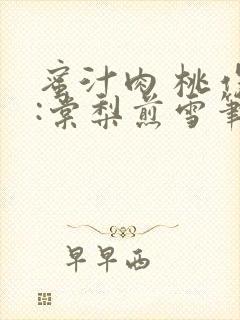 蜜汁肉桃作
:棠梨煎雪笔
早早西